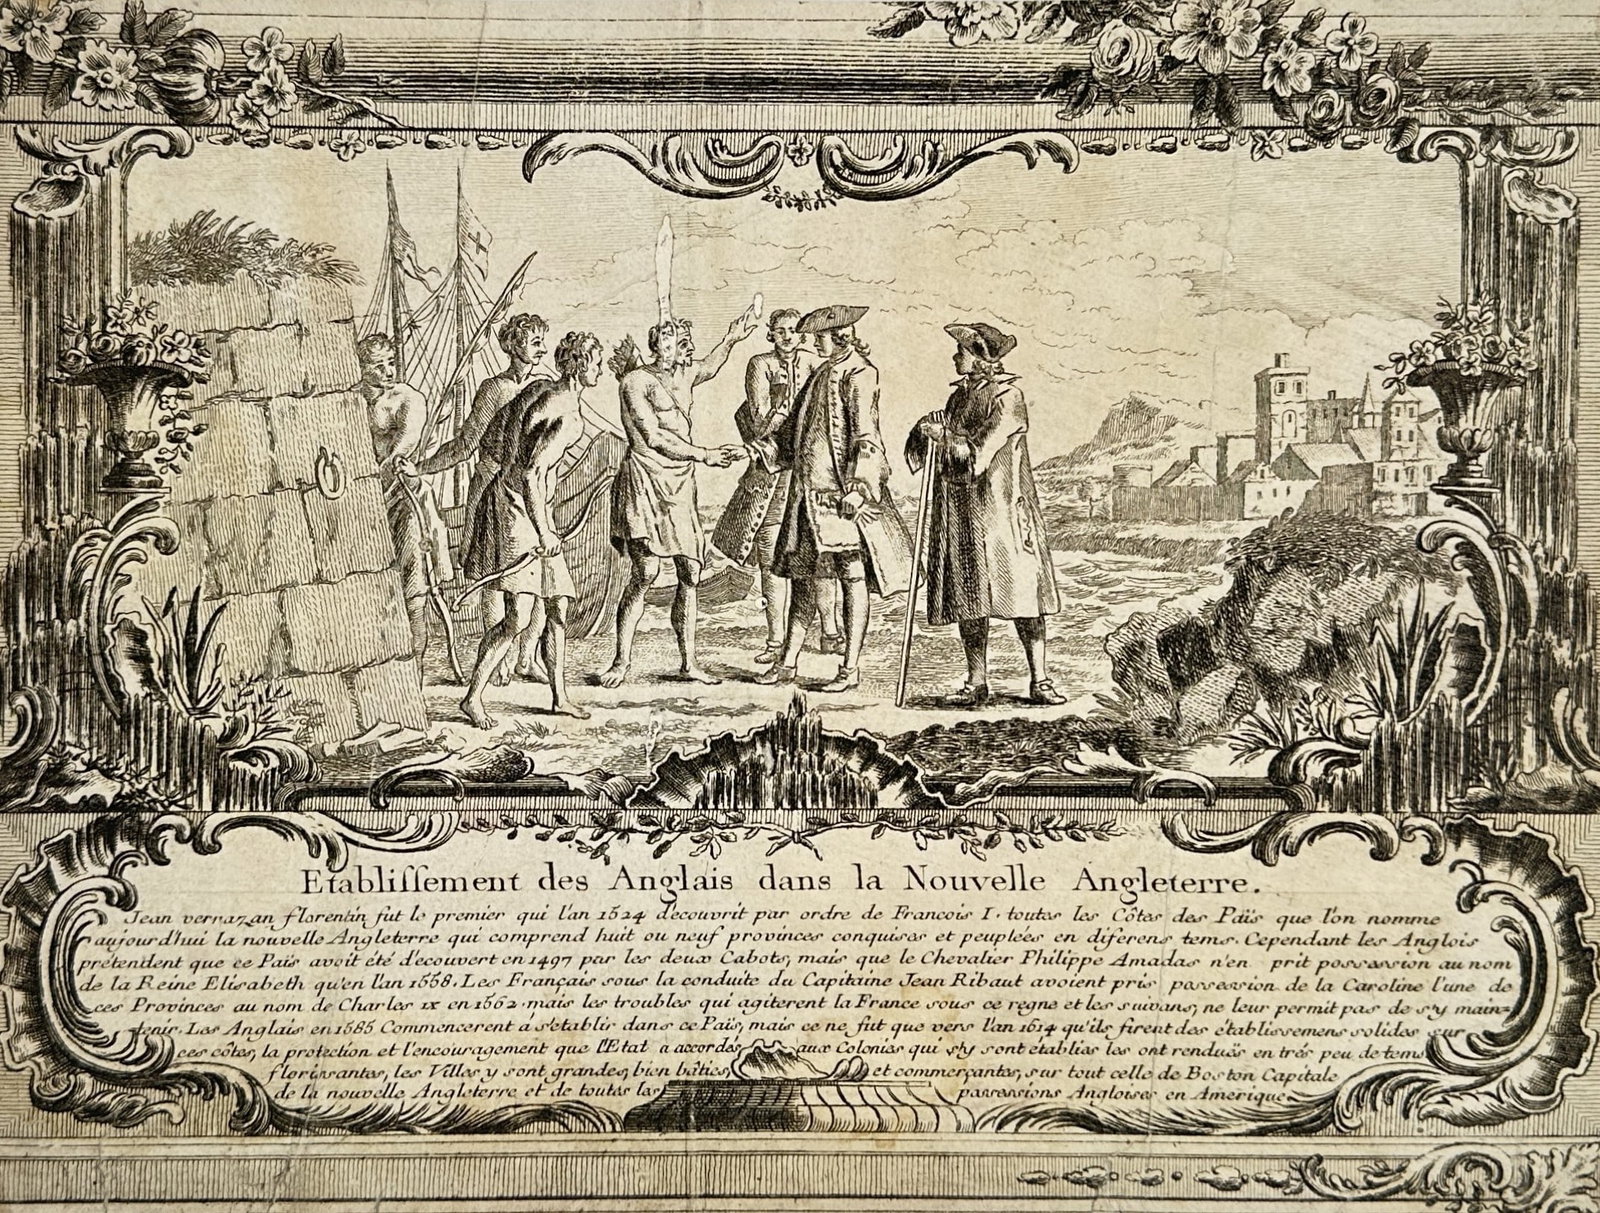 Etablissement des Anglais dans la Nouvelle Angleterre.
Jean verrazan florentin fut le premier qui l'an 1524 découvrit par ordre de Francois I. toutes les Côtes des Païs que l'on nomme
aujourd'hui la nouvelle Angleterre qui comprend huit ou neuf provinces conquises et peuplées en diferens tems. Cependant les Anglois
prétendent que ce Païs avoit été découvert en 1497 par les deux Cabots, mais que le Chevalier Philippe Amadas n'en prit possession au nom
de la Reine Elisabeth qu'en l'an 1558. Les Français sous la conduite du Capitaine Jean Ribaut avoient pris possession de la Caroline l'une de
ces Provinces au nom de Charles IX en 1562. mais les troubles qui agiterent la France sous ce regne et les suivans, ne leur permit pas de s'y main=
tenir. Les Anglais en 1585 Commencerent à s'etablir dans ce Païs, mais ce ne fut que vers l'an 1614 qu'ils firent des établissemens solides sur
ces côtes, la protection et l'encouragement que l'Etat a accordés aux Colonies qui s'y sont établies les ont renduës en trés peu de tems
florissantes, les Villes y sont grandes, bien bâties, et commerçantes, sur tout celle de Boston Capitale
de la nouvelle Angleterre et de toutes les possessions Angloises en Amerique.